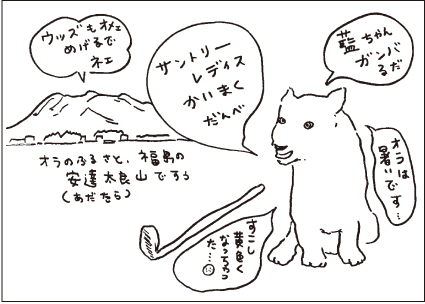 ウッズもオメェ
めげるで
ネェ
サントリー
レディス
かいまく
だんべ
藍ちゃん
ガンバ
るだ
オラは
暑いです…
オラのふるさと、福島の
安達太良山ですぅ
(あだたら)
すこし
黄色く
なっちゃっ
た…